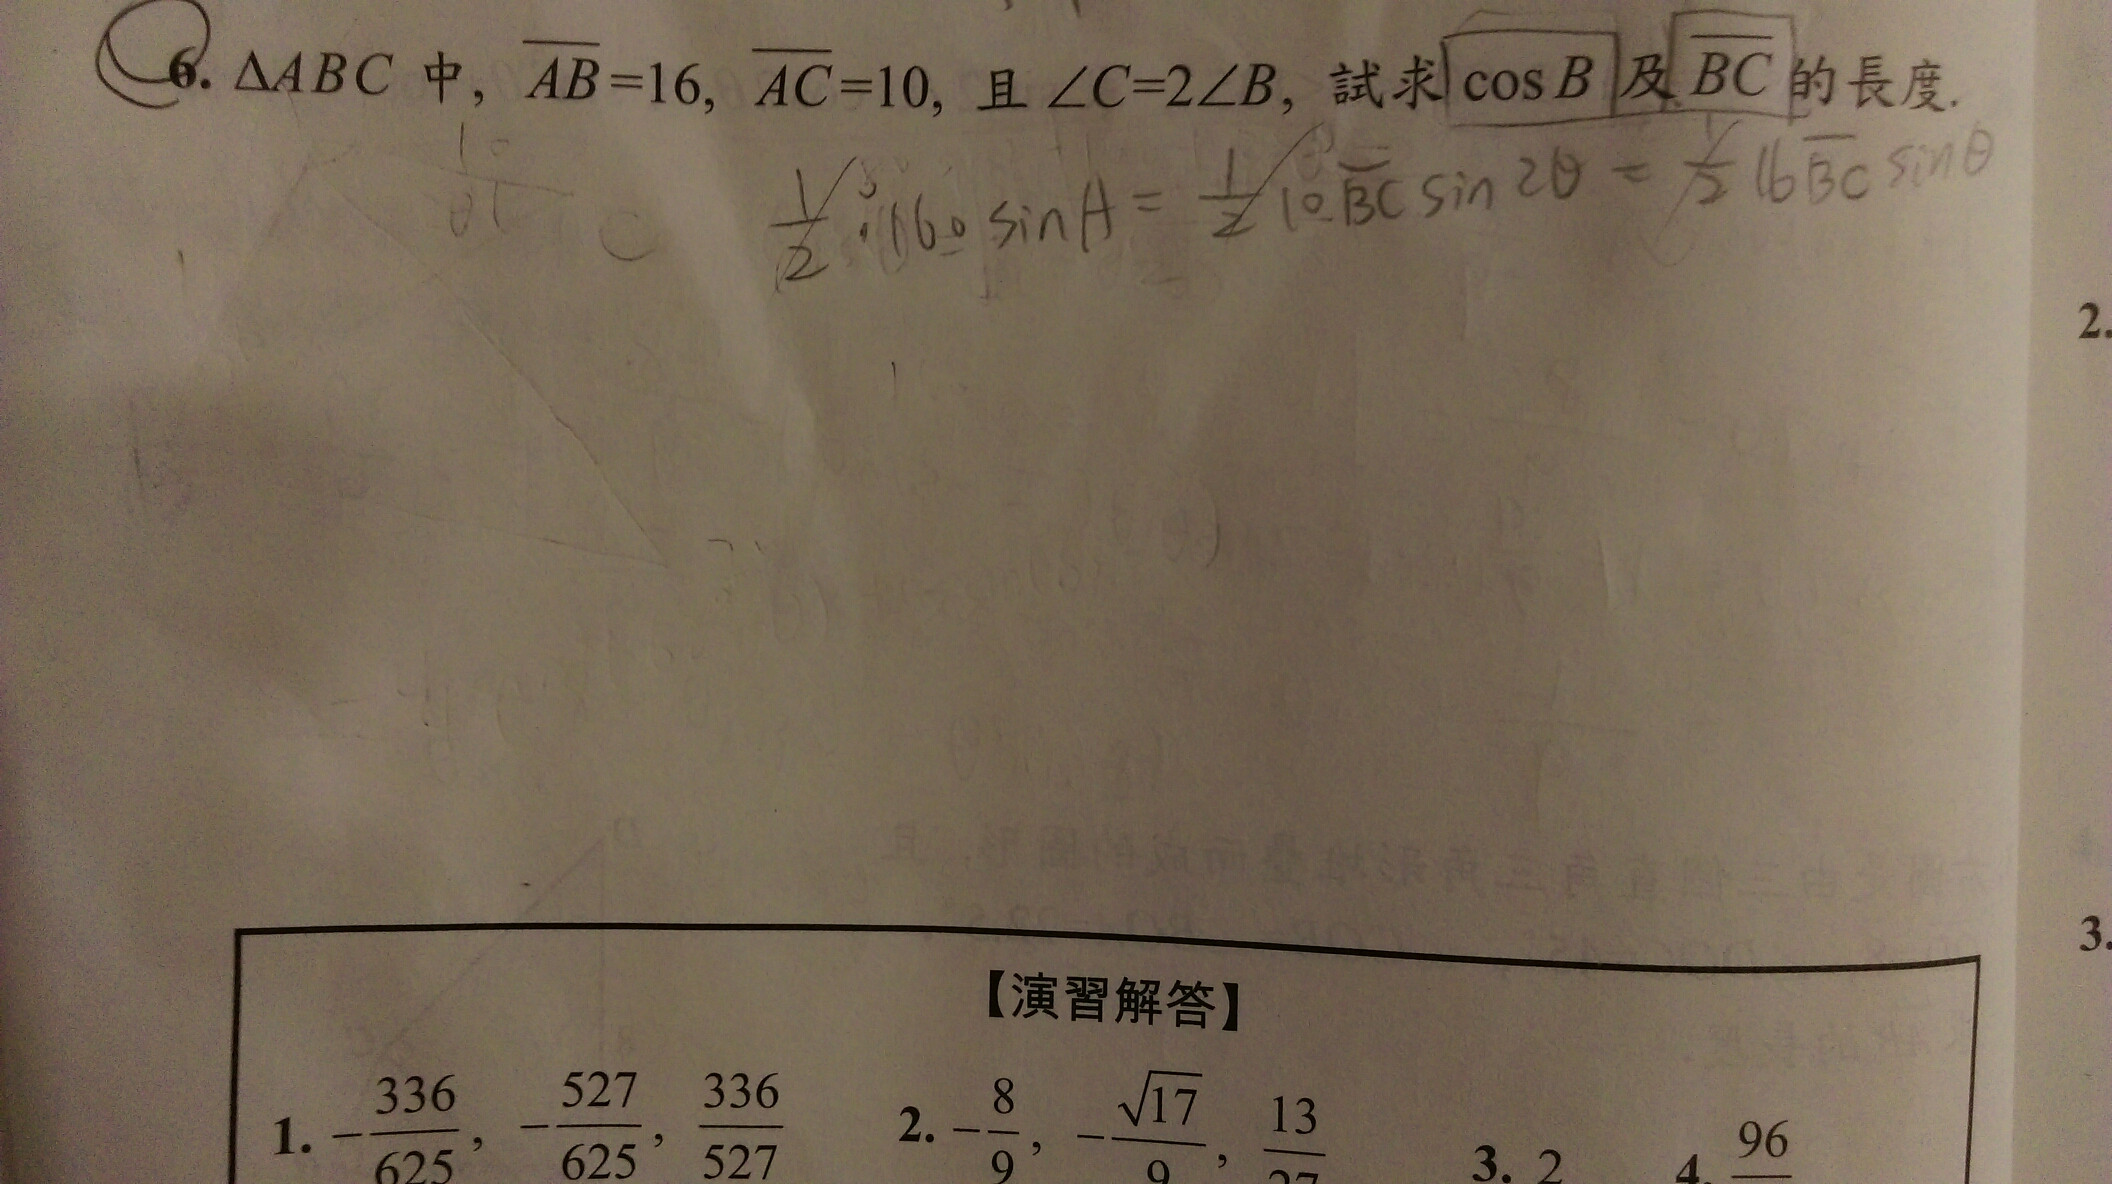 6. ΔABC 中, AB=16, AC=10, 且 ∠C=2∠B, 試求 cos B 及 BC 的長度.
1/2 · 160 sin A = 1/2 10 BC sin 2θ = 1/2 16 BC sin θ
2.
3.
【演習解答】
1. -336/625, -527/625, 336/527 2. -8/9, -√17/9, 13/27 3. 2 4. 96